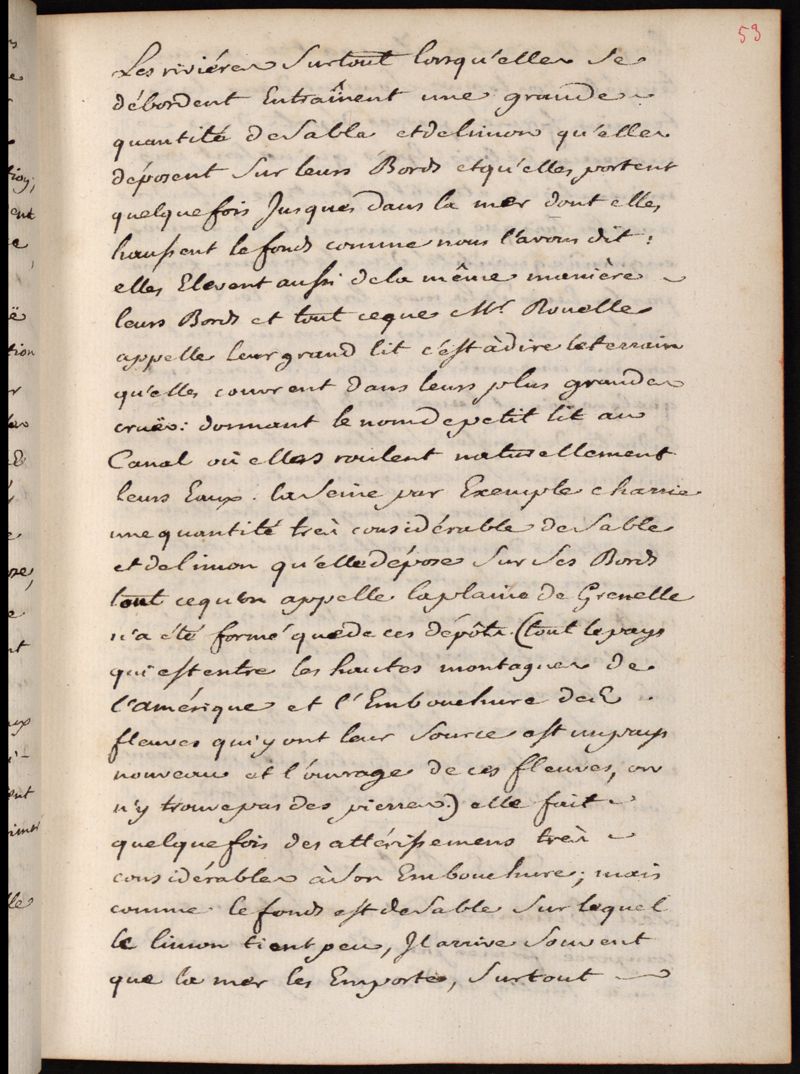 53
Les riviéres Surtout lorsqu'elles se
débordent Entraînent une grande
quantité de Sable et de limon qu'elles
déposent Sur leurs Bords et qu'elles portent
quelque fois Jusques dans la mer dont elles
haussent le fonds comme nous l'avons dit:
elles Elevent aussi de la même manière
leurs Bords et tout ce que Mr. Rouelle
appelle leur grand lit c'est à dire le terrain
qu'elles couvrent dans leurs plus grandes
cruës: donnant le nom de petit lit au
Canal où elles roulent naturellement
leurs Eaux. la Seine par Exemple charrie
une quantité très considérable de Sable
et de limon qu'elle dépose Sur Ses Bords
tout ce qu'on appelle la plaine de Grenelle
n'a été formé que de ces dépôts. (tout le pays
qui est entre les hautes montagnes de
l'amérique et l'Embouchure des
fleuves qui y ont leur Source est un pays
nouveau et l'ouvrage de ces fleuves, on
n'y trouve pas des pierres) elle fait
quelque fois des attérissemens très
considérables à Son Embouchure; mais
comme le fonds est de Sable Sur lequel
le limon tient peu, Il arrive Souvent
que la mer les Emporte, Surtout